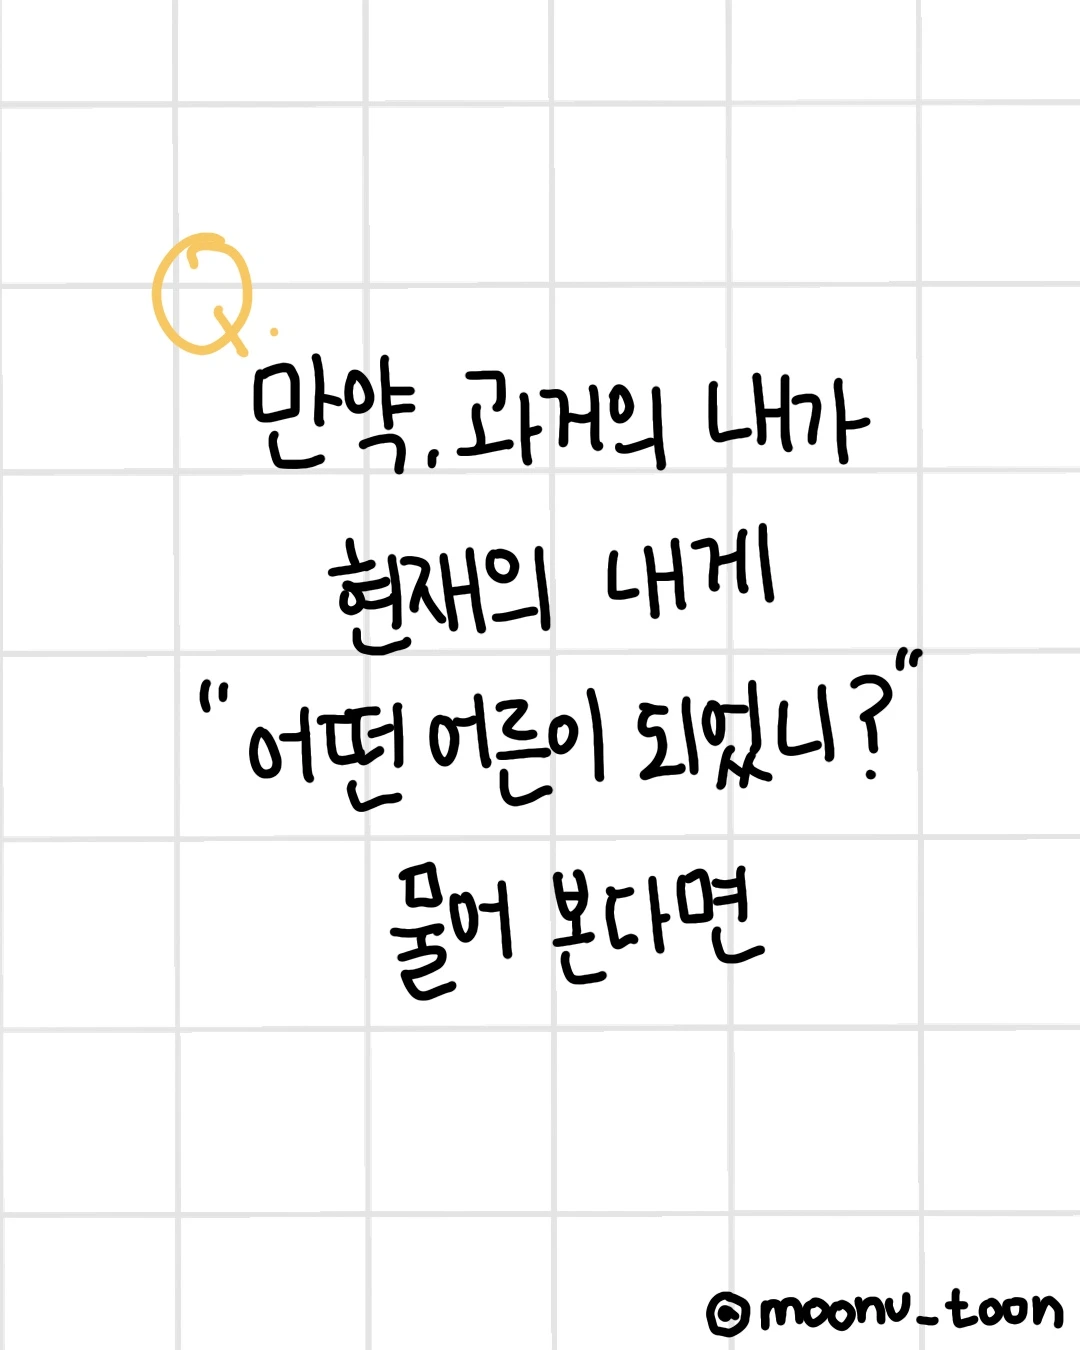 Q.
만약, 과거의 내가
현재의 내게
"어떤 어른이 되었니?"
물어 본다면
@moonu_toon